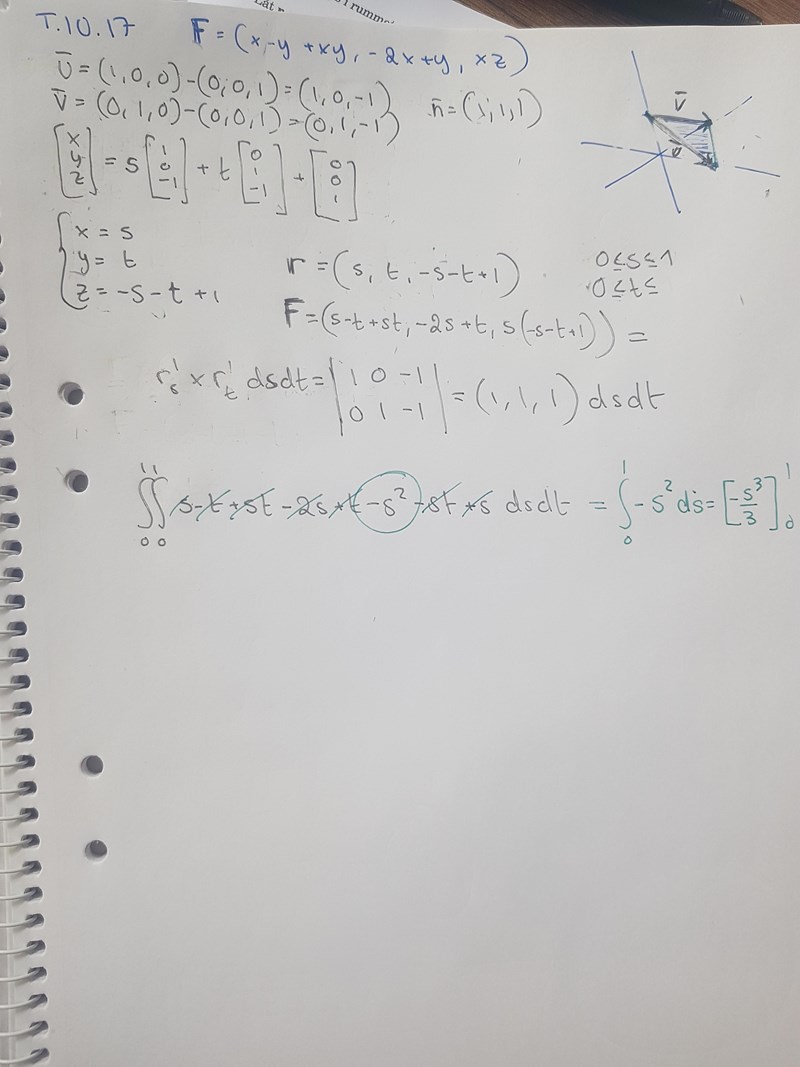 Låt
i rumme
T.10.17 F = (x-y+xy, -2x+y, xz)
ū = (1,0,0)-(0,0,1) = (1,0,-1)
v̄ = (0,1,0)-(0,0,1) = (0,1,-1) n̄ = (1,1,1)
v̄
ū
[x y z] = s [1 0 -1] + t [0 1 -1] + [0 0 1]
{ x = s
y = t
z = -s-t+1
r = (s, t, -s-t+1) 0≤s≤1
0≤t≤
F = (s-t+st, -2s+t, s(-s-t+1)) =
r's × r't dsdt = |1 0 -1 0 1 -1| = (1,1,1) dsdt
∫₀¹∫₀¹ s-t+st-2s+t-s²-st+s dsdt = ∫₀¹ -s² ds = [-s³/3]₀¹